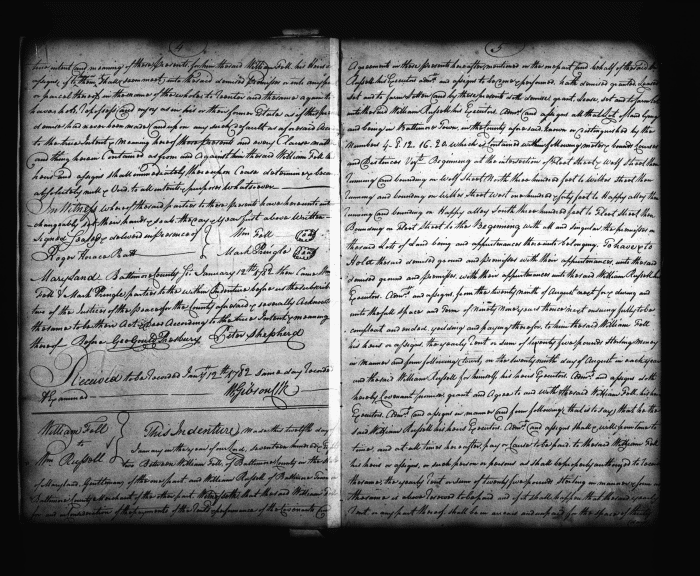 4
true intent and meaning of these presents for him the said William Fell his Heirs or
assigns, or of them shall seem meet, into the said demised Premises or into any part
or parcel thereof in the name of the whole to Reenter and the same again to
have, hold, Repossess and enjoy as in his or their former Estate as if this present
demise had never been made and upon any such default as aforesaid
to the true Intent & Meaning hereof these presents and every Clause matter
and thing herein Contained as from and against him the said William Fell his
heirs and assigns shall immediately thereupon Cease determine & become
absolutely null & Void to all intents & purposes whatsoever
In Witness whereof the said parties to these presents have hereunto inter-
changeably set their hands & seals the day & year first above Written
Signed Sealed & delivered in presence of Wm Fell Seal
Roger Horace Pratt Mark Pringle Seal
Maryland Baltimore County Ss: January 12th 1782 then Came Wm
Fell & Mark Pringle parties to the within Indenture before us the subscribers
two of the Justices of the peace for the County aforesaid & severally Acknowledged
the same to be their Act & Deed According to the true Intent & meaning
thereof Before Geo: Gould Presbury Peter Shepherd
Received to be Recorded Jany 12th 1782 same day Recorded
& Examined Wm Gibson Clk
William Fell
to
Wm Russell
This Indenture Made this twelfth day of
January in the year of our Lord, seventeen hundred & Eighty
two Between William Fell, of Baltimore County in the State
of Maryland, Gentleman of the one part and William Russell of Baltimore Town in
Baltimore County & Merchant of the other part Witnesseth that the said William Fell
for and in Consideration of the payments of the Rents & performance of the Covenants and
5
Agreements in these presents hereafter mentioned on the part and behalf of the said Wm
Russell his Executors admrs and assigns to be done & performed, hath demised granted Leased
set and to farm let and by these presents doth demise grant, lease, set and to farm let
unto the said William Russell his Executors Admrs and assigns all that Lot of Land lying
and being in Baltimore Town, in the County aforesaid known & distinguished by the
Numbers 4. 8. 12. 16. 20 which is Contained within following metes, bounds Courses
and Distances Vizt Beginning at the intersection of Fleet Street & Wolf Street then
running and bounding on Wolf Street North three hundred feet to Wilkes Street then
running and bounding on Wilkes Street West one hundred & sixty feet to Happy Alley then
running and bounding on Happy Alley South three hundred feet to Fleet Street then
Bounding on Fleet Street to the Beginning with all and singular the premisses on
the said Lots of Land being and appurtenances thereunto belonging. To have & to
Hold the said demised ground and premisses with their appurtenances, unto the said
demised ground and premisses, with their appurtenances unto the said William Russell his
Executors Admrs and assigns, from the twenty ninth of August next for & during and
unto the full space and term of Ninety Nine years thence next ensuing fully to be
compleat and ended, yielding and paying therefor, to him the said William Fell
his heirs or assigns, the yearly Rent or sum of twenty five pounds Sterling Money
in manner and form following, twenty on the twenty ninth day of August in each year
and the said William Russell for himself, his heirs Executors Admrs and assigns doth
hereby Covenant promise, grant and Agree to and with the said William Fell his
Executors Admrs and assigns in manner and form following, that is to say, that he the
said William Russell his heirs Executors Admrs and assigns shall & will from time to
time, and at all times hereafter, pay or Cause to be paid to the said William Fell
his heirs or assigns, or such person or persons as shall be properly authorized to receive
the same, the yearly Rent or sum of twenty five pounds Sterling in manner & form as
the same is above Reserved to be paid and if it shall happen that the said yearly
Rent or any part thereof, shall be in arrear and unpaid for the space of thirty